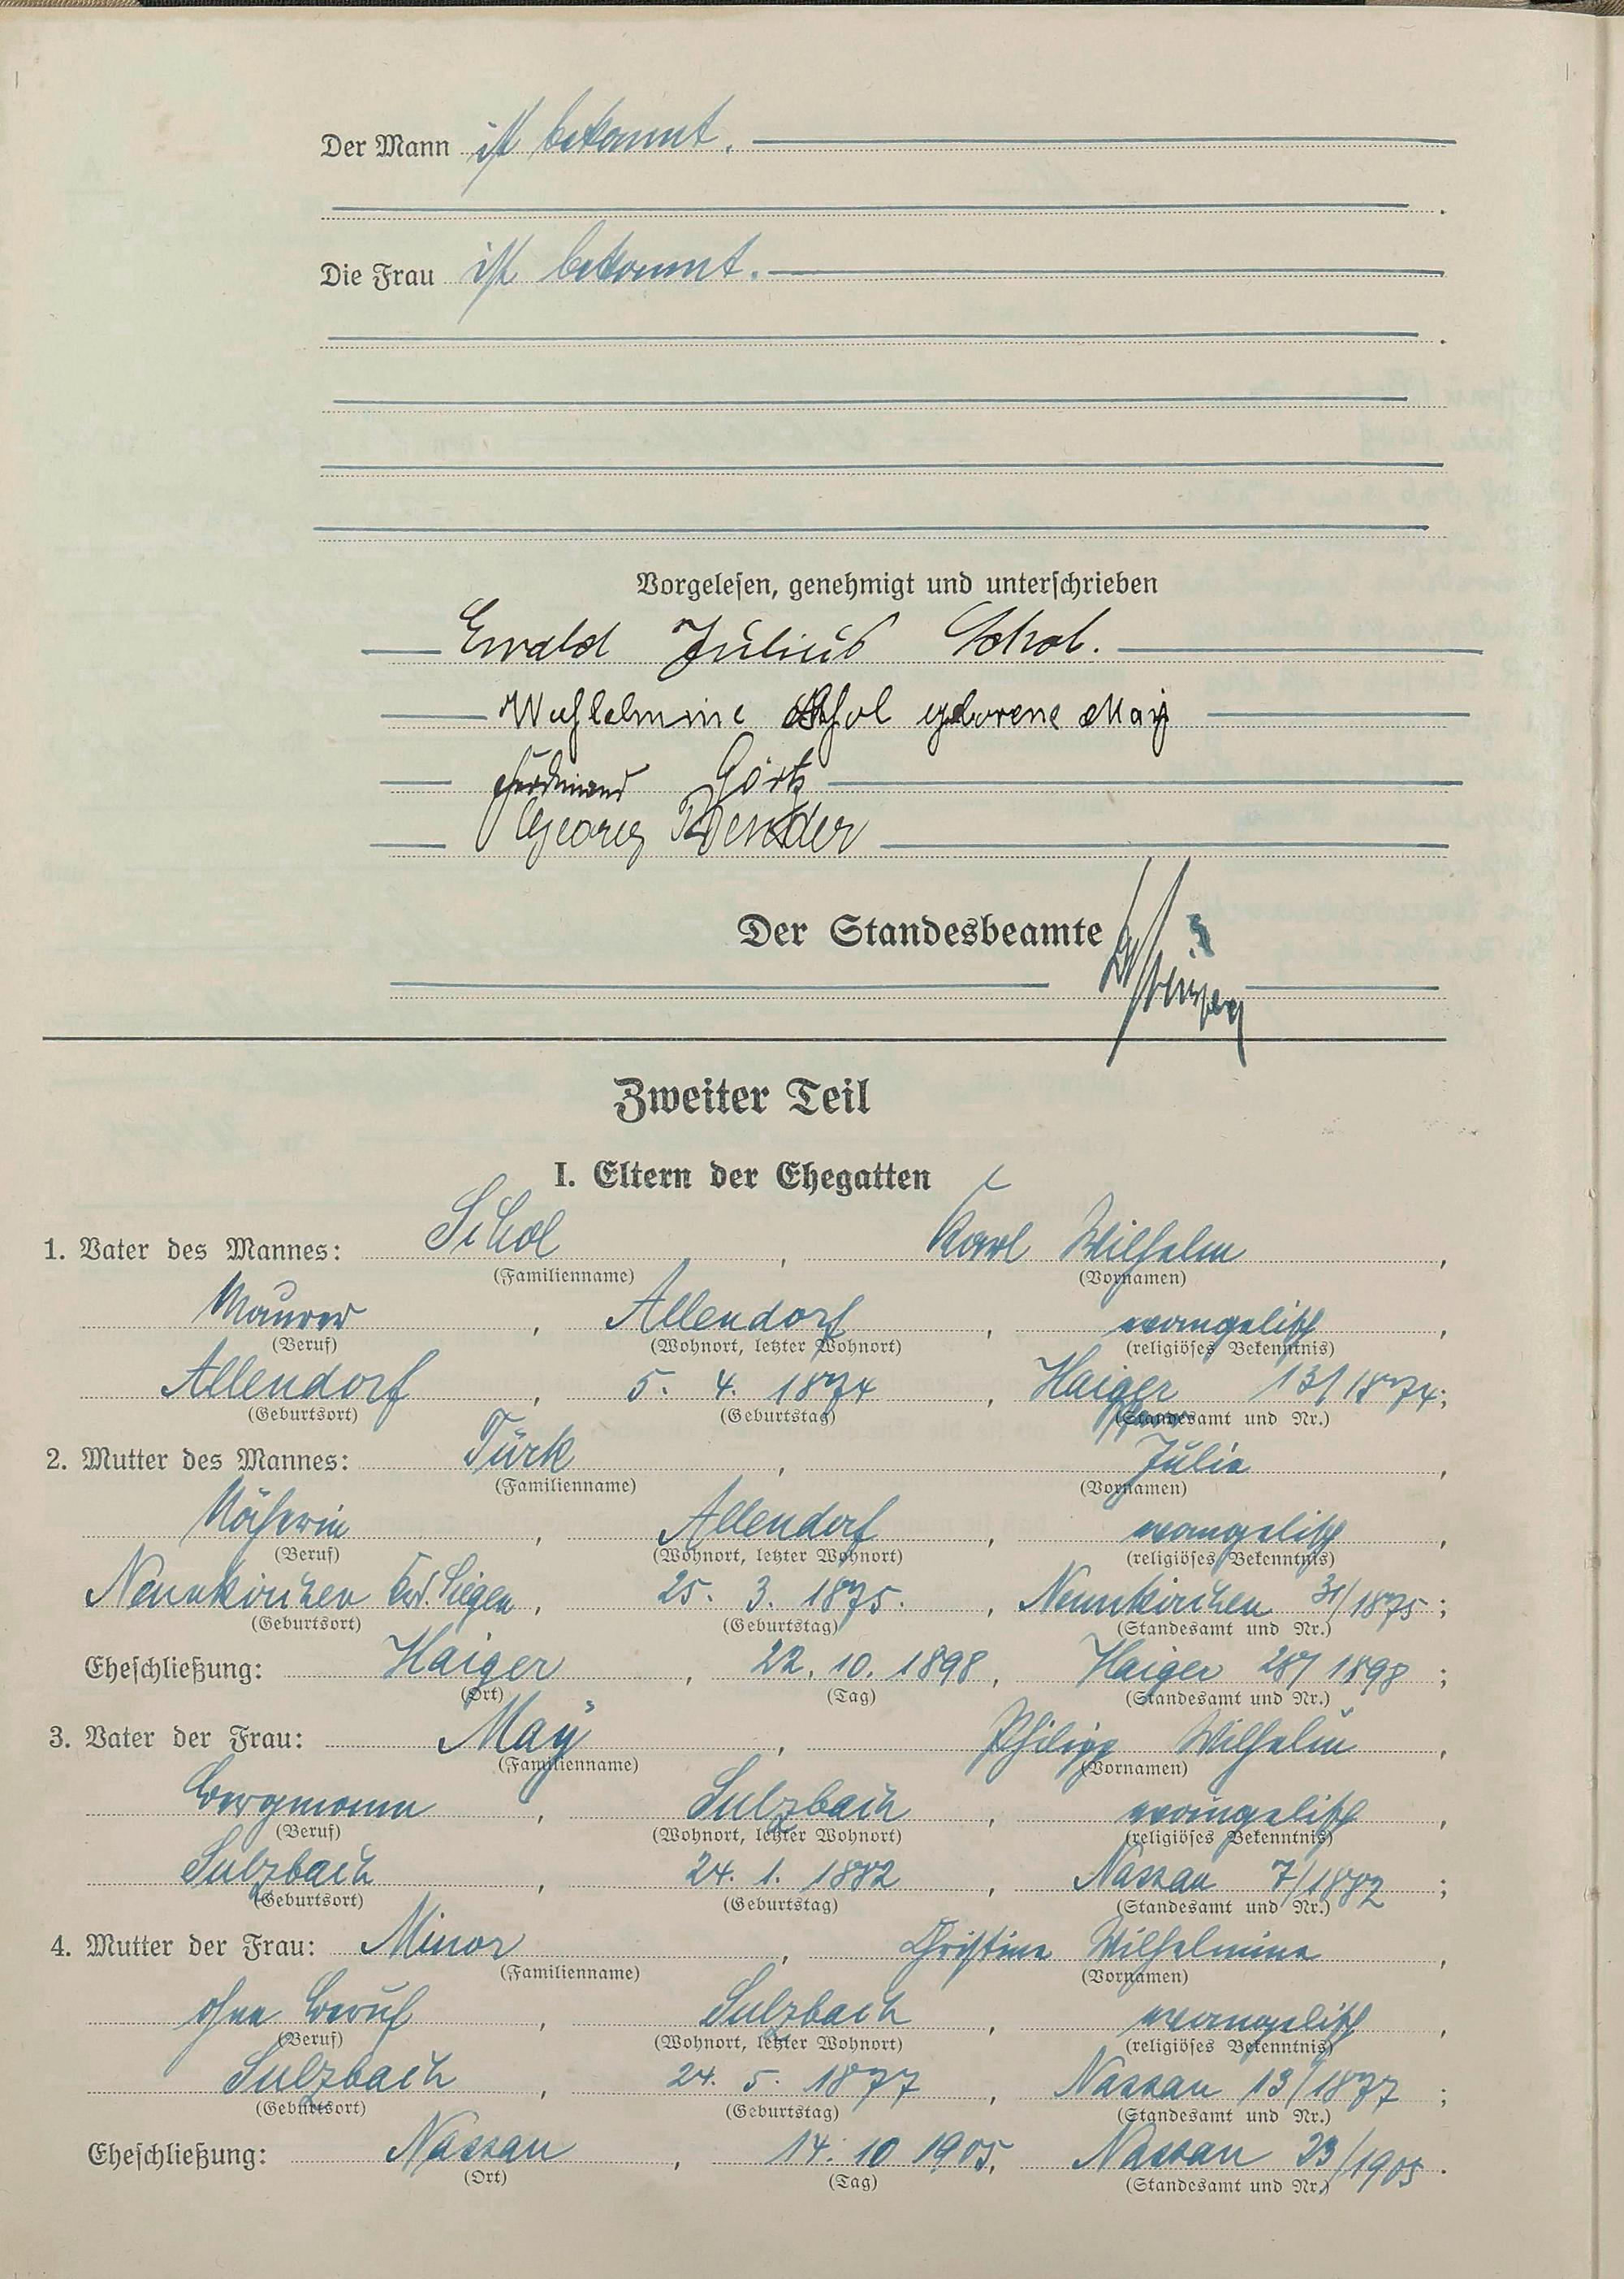 Der Mann ist bekannt.
Die Frau ist bekannt.
Vorgelesen, genehmigt und unterschrieben
Ewald Julius Schol.
Wilhelmine Schol geborene May
Ferdinand Görtz
Georg Bender
Der Standesbeamte
Zweiter Teil
I. Eltern der Ehegatten
1. Vater des Mannes: Schol, Karl Wilhelm,
(Familienname) (Vornamen)
Maurer, Allendorf, evangelisch,
(Beruf) (Wohnort, letzter Wohnort) (religiöses Bekenntnis)
Allendorf, 5. 4. 1874, Haiger 13/1874;
(Geburtsort) (Geburtstag) (Standesamt und Nr.)
2. Mutter des Mannes: Türk, Julie,
(Familienname) (Vornamen)
Näherin, Allendorf, evangelisch,
(Beruf) (Wohnort, letzter Wohnort) (religiöses Bekenntnis)
Neunkirchen Krs. Siegen, 25. 3. 1875., Neunkirchen 31/1875;
(Geburtsort) (Geburtstag) (Standesamt und Nr.)
Eheschließung: Haiger, 22. 10. 1898, Haiger 28/1898;
(Ort) (Tag) (Standesamt und Nr.)
3. Vater der Frau: May, Philipp Wilhelm,
(Familienname) (Vornamen)
Bergmann, Sulzbach, evangelisch,
(Beruf) (Wohnort, letzter Wohnort) (religiöses Bekenntnis)
Sulzbach, 24. 1. 1882, Nassau 7/1882;
(Geburtsort) (Geburtstag) (Standesamt und Nr.)
4. Mutter der Frau: Minor, Christine Wilhelmine,
(Familienname) (Vornamen)
ohne Beruf, Sulzbach, evangelisch,
(Beruf) (Wohnort, letzter Wohnort) (religiöses Bekenntnis)
Sulzbach, 24. 5. 1877, Nassau 13/1877;
(Geburtsort) (Geburtstag) (Standesamt und Nr.)
Eheschließung: Nassau, 14. 10 1905, Nassau 23/1905.
(Ort) (Tag) (Standesamt und Nr.)